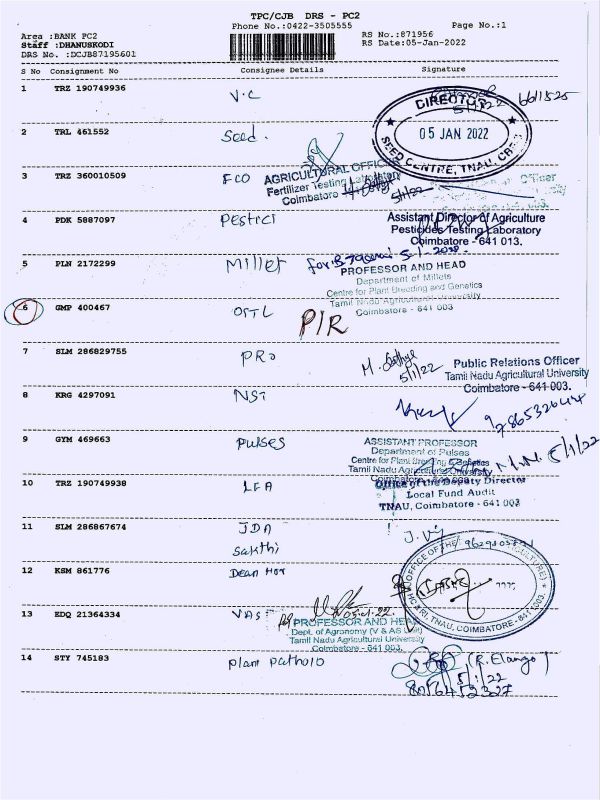 TPC/CJB DRS - PC2
Phone No.:0422-3505555
Page No.:1
Area :BANK PC2
RS No.:871956
Staff :DHANUSKODI
RS Date:05-Jan-2022
DRS No. :DCJB87195601
S No Consignment No Consignee Details Signature
1 TRZ 190749936 V.C
5/1/22
DIRECTOR
05 JAN 2022
SEED CENTRE, TNAU, CBE-3
2 TRL 461552 Seed.
3 TRZ 360010509 FCO
AGRICULTURAL OFFICER
Fertilizer Testing Laboratory
Coimbatore
5/1/22
4 PDK 5887097 Pestici
Assistant Director of Agriculture
Pesticides Testing Laboratory
Coimbatore - 641 013.
5 PLN 2172299 Millet
PROFESSOR AND HEAD
Department of Millets
Centre for Plant Breeding and Genetics
Tamil Nadu Agricultural University
Coimbatore - 641 003
6 GMP 400467 OSTL P/R
7 SLM 286829755 PRO
5/1/22
Public Relations Officer
Tamil Nadu Agricultural University
Coimbatore - 641 003.
8 KRG 4297091 NST
9 GYM 469663 Pulses
5/1/22
ASSISTANT PROFESSOR
Department of Pulses
Centre for Plant Breeding & Genetics
Tamil Nadu Agricultural University
10 TRZ 190749938 LFA
Office of the Deputy Director
Local Fund Audit
TNAU, Coimbatore - 641 003
11 SLM 286867674 JDA
Sakthi
12 KSM 861776 Dean Hor
OFFICE OF THE
HC & RI, TNAU, COIMBATORE - 641 003.
13 EDQ 21364334 VAS
PROFESSOR AND HEAD
Dept. of Agronomy (V & AS Unit)
Tamil Nadu Agricultural University
Coimbatore - 641 003.
14 STY 745183 Plant Patholo
(R. Elango)
5/1/22